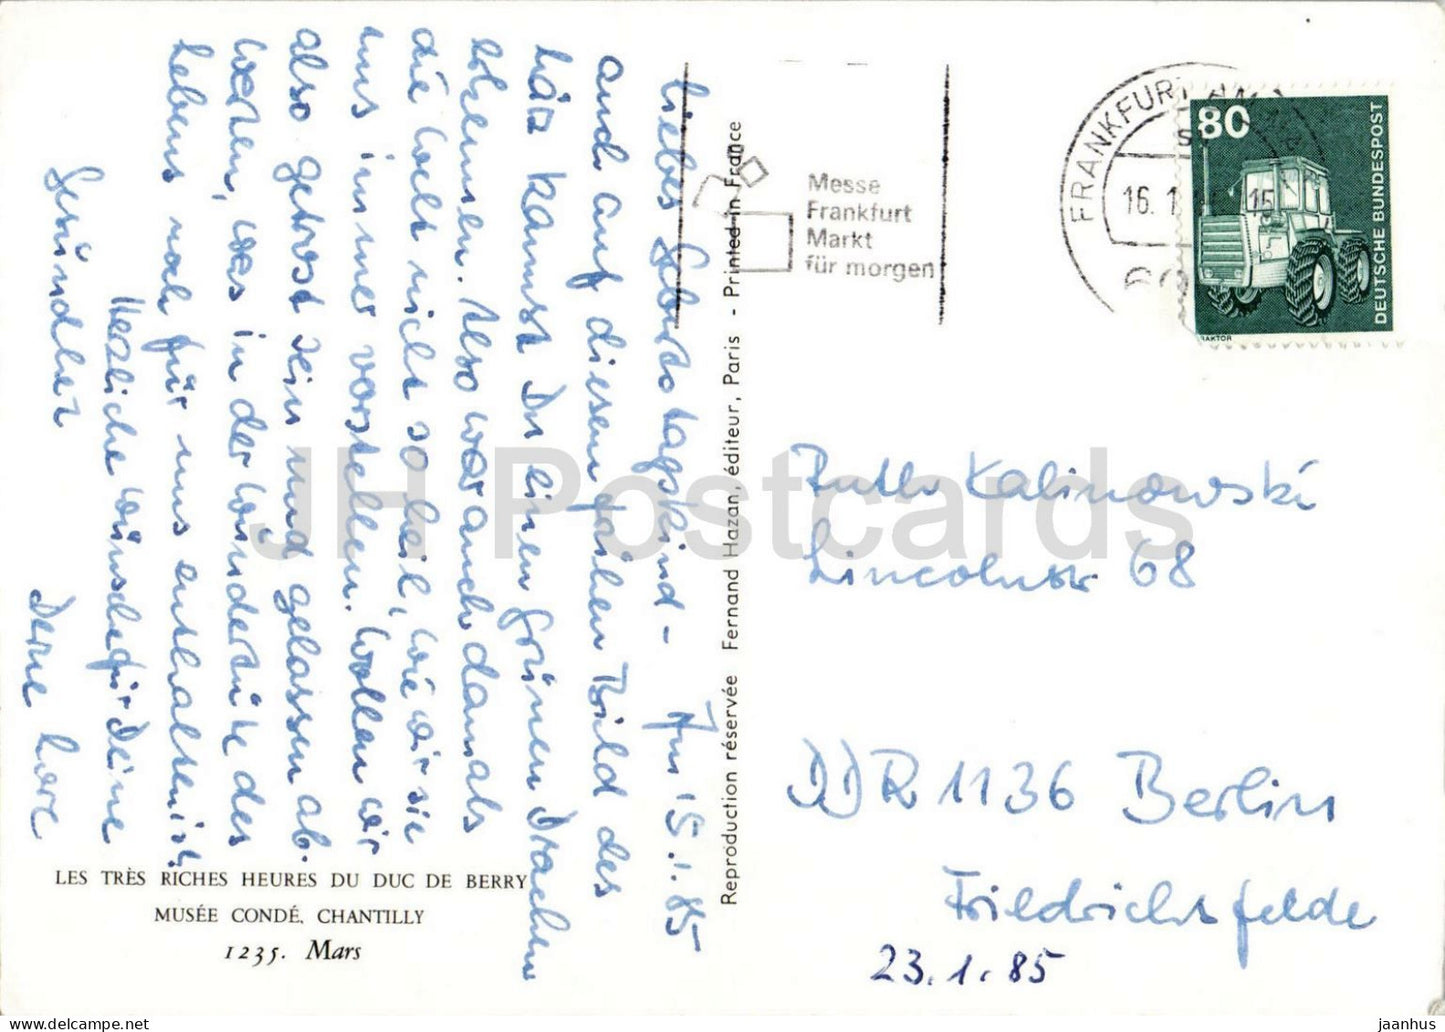 Liebes Geburtstagskind – Am 15.1.85
auch auf diesem frühen Bild des
März kannst Du einen grünen Drachen
erkennen. Also war auch damals
die Welt nicht so heil, wie wir sie
uns immer vorstellen. Wollen wir
also getrost sein und gelassen ab-
warten, was in der Wundertüte des
Lebens noch für uns enthalten ist.
Herzliche Wünsche für Deine
Gesundheit
Deine Lore
LES TRÈS RICHES HEURES DU DUC DE BERRY
MUSÉE CONDÉ, CHANTILLY
1235. Mars
Reproduction réservée Fernand Hazan, éditeur, Paris - Printed in France
Messe
Frankfurt
Markt
für morgen
FRANKFURT AM
16. 1
15
60
80
DEUTSCHE BUNDESPOST
RAKTOR
Ruth Kalinowski
Lincolnstr 68
DDR 1136 Berlin
Friedrichsfelde
23.1.85
JH Postcards
jaanhus — https://www.jaanhus.com